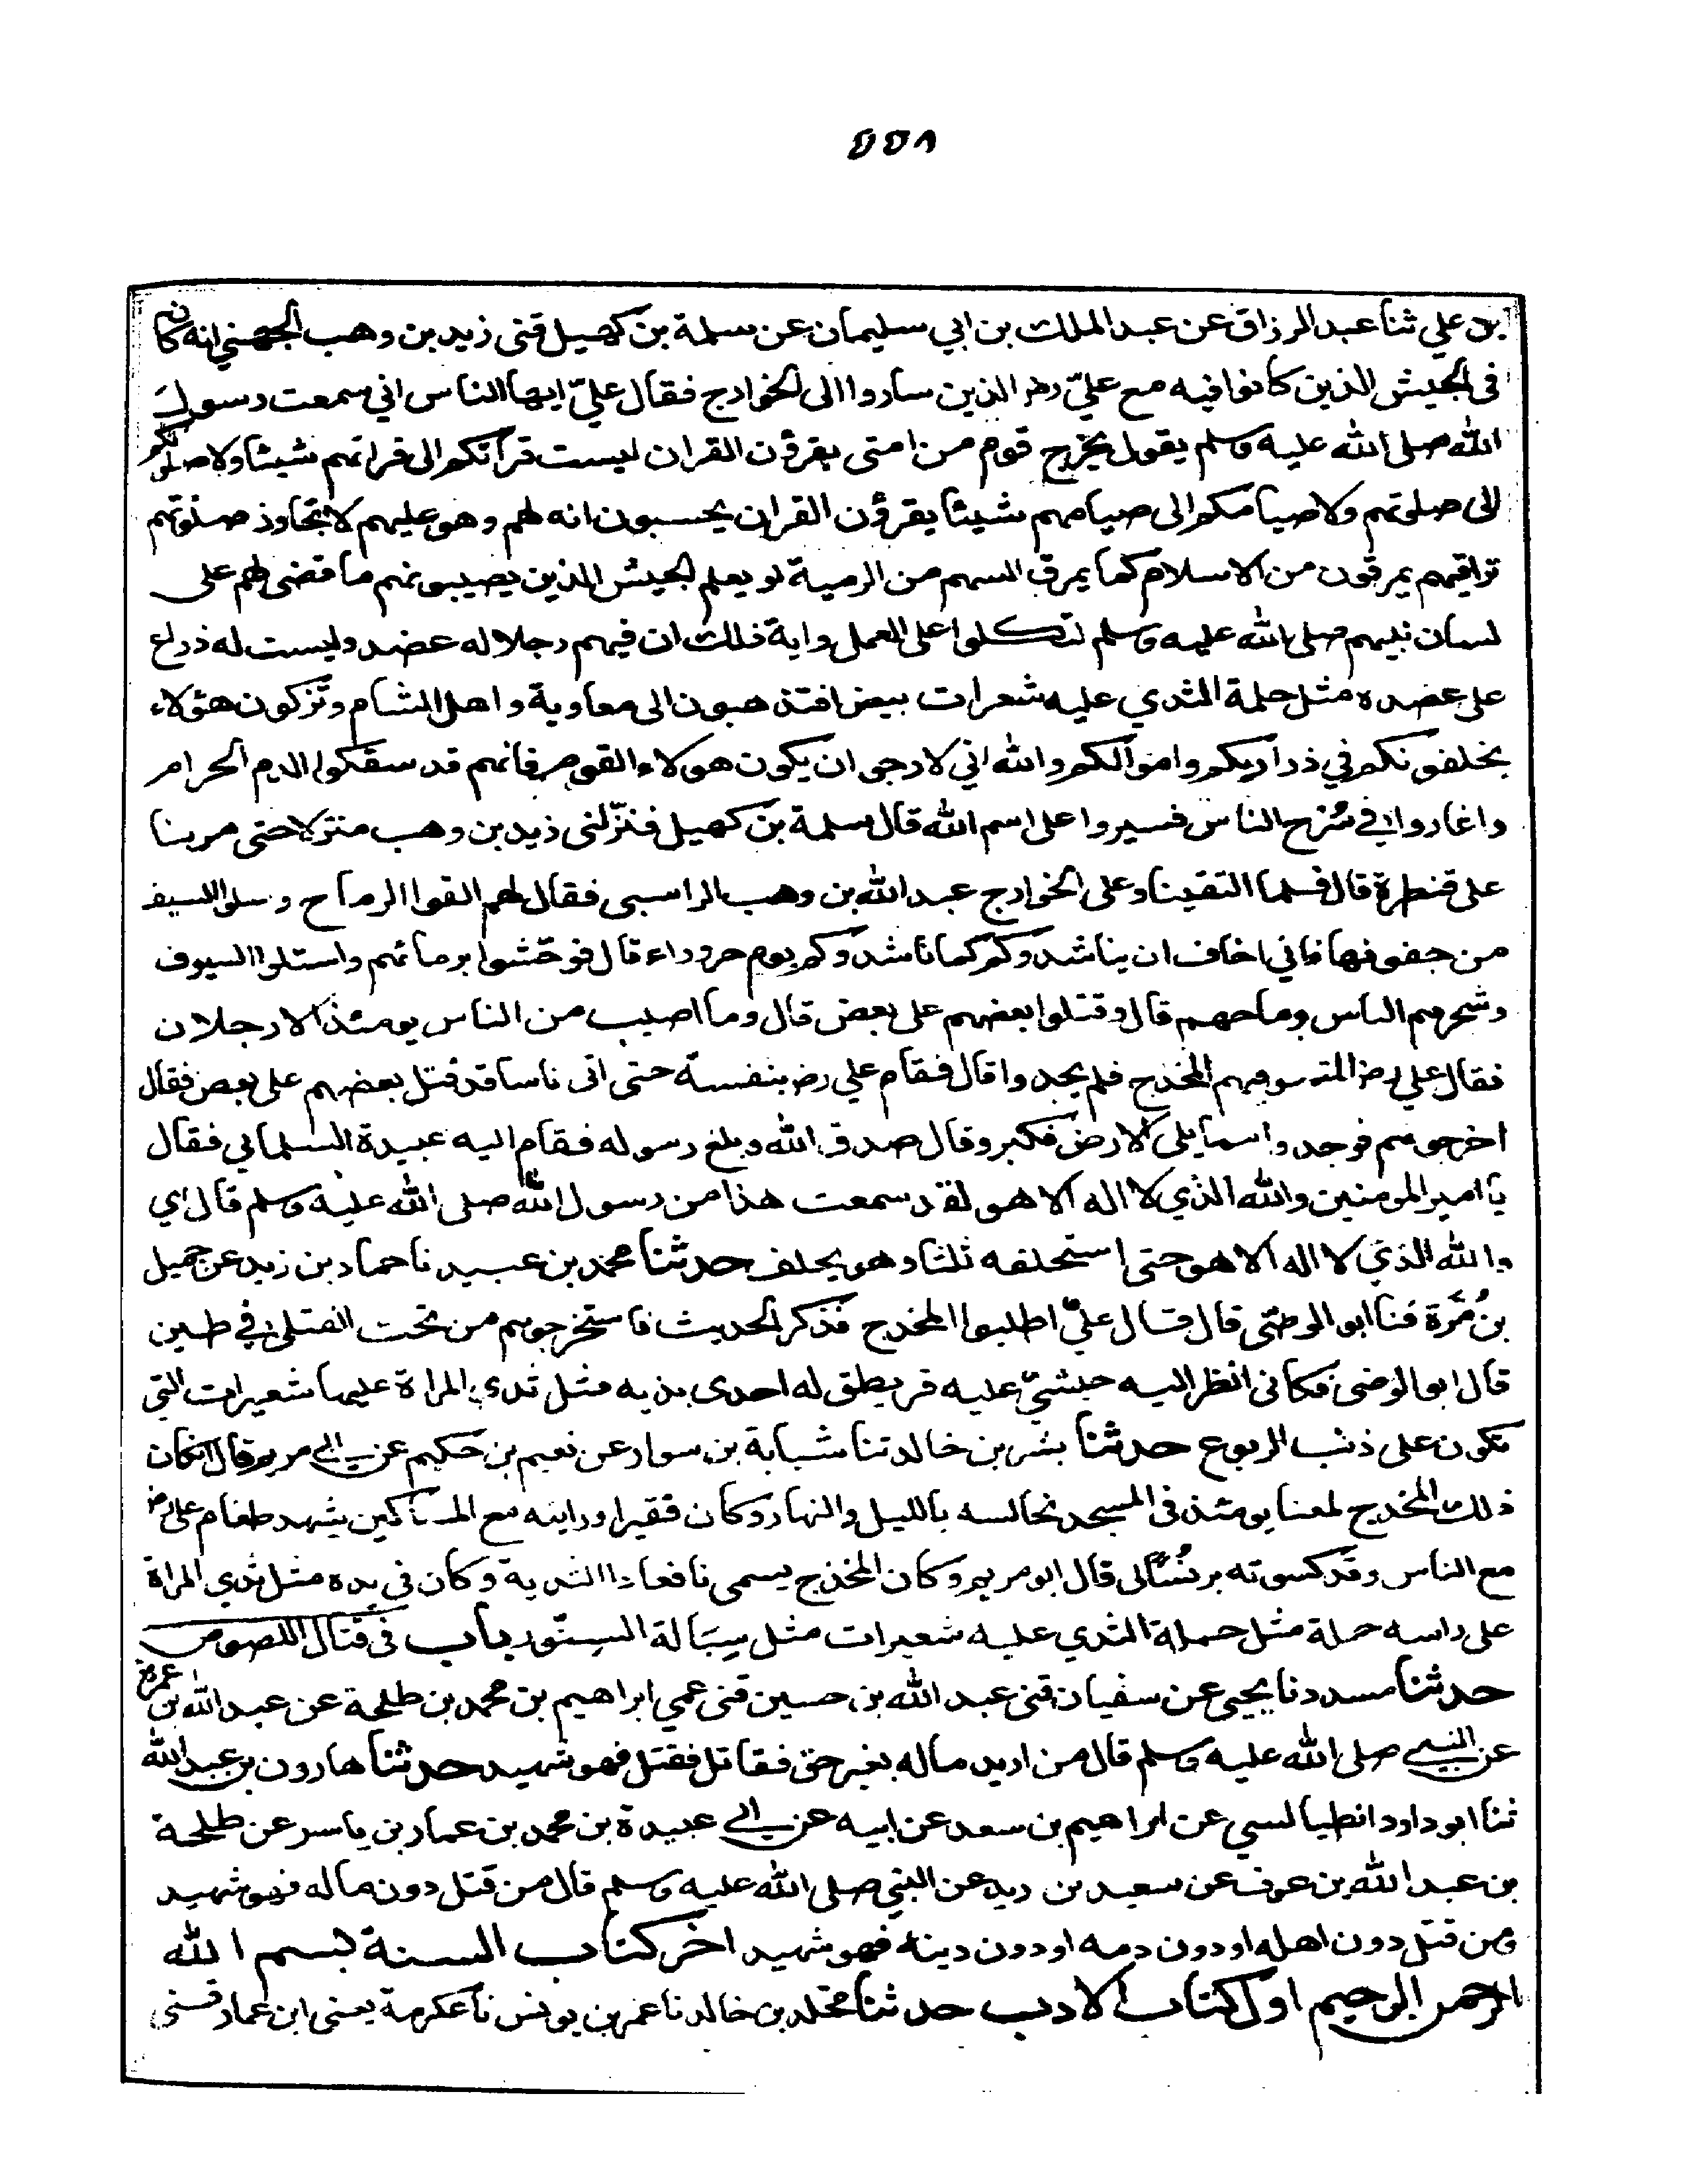 ٥٥٨
بن علي ثنا عبد الرزاق عن عبد الملك بن ابي سليمان عن سلمة بن كهيل قثنى زيد بن وهب الجهني انه كان
فى الجيش الذين كانوا فيه مع عليّ رض الذين ساروا الى الخوارج فقال عليّ ايها الناس اني سمعت رسول
الله صلى الله عليه وسلم يقول يخرج قوم من امتى يقرؤن القران ليست قرآتكم الى قراتهم شيئا ولا صلوتكم
الى صلوتهم ولا صيامكم الى صيامهم شيئا يقرؤن القران يحسبون انه لهم وهو عليهم لا تجاوز صلوتهم
تراقيهم يمرقون من الاسلام كما يمرق السهم من الرمية لو يعلم الجيش الذين يصيبونهم ما قضى لهم على
لسان نبيهم صلى الله عليه وسلم لتكلوا على العمل واية ذلك ان فيهم رجلا له عضد وليست له ذراع
على عضده مثل حلمة الثدي عليه شعرات بيض افتذهبون الى معاوية واهل الشام وتتركون هؤلاء
يخلفونكم في ذراريكم واموالكم والله اني لارجى ان يكون هولاء القوم فانهم قد سفكوا الدم الحرام
واغاروا في سُرح الناس فسيروا على اسم الله قال سلمة بن كهيل فنزّلنى زيد بن وهب منزلا حتى مر بنا
على قنطرة قال فلما التقينا وعلى الخوارج عبد الله بن وهب الراسبى فقال لهم القوا الرماح وسلوا السيف
من جفونها فاني اخاف ان يناشدوكم كما ناشدوكم يوم حروراء قال فوحّشوا برماحهم واستلوا السيوف
وشجرهم الناس برماحهم قال وقتلوا بعضهم على بعض قال وما اصيب من الناس يومئذ الا رجلان
فقال علي رض التمسو فيهم المخدج فلم يجدوا قال فقام علي رض بنفسه حتى اتى ناسا قد قتل بعضهم على بعض فقال
اخرجوهم فوجدوا مما يلى الارض فكبر وقال صدق الله وبلغ رسوله فقام اليه عبيدة السلماني فقال
يا امير المومنين والله الذي لا اله الا هو لقد سمعت هذا من رسول الله صلى الله عليه وسلم قال اي
والله الذي لا اله الا هو حتى استحلفه ثلثا وهو يحلف حدثنا محمد بن عبيد نا حماد بن زيد عن جميل
بن مُرّة ثنا ابو الوضئى قال قال عليّ اطلبوا المخدج فذكر الحديث فاستخرجوهم من تحت القتلى في طين
قال ابو الوضى فكانى انظر اليه حبشيّ عليه قريطق له احدى يديه مثل ثدي المراة عليها شعيرات التي
تكون على ذنب الربوع حدثنا بشر بن خالد ثنا شبابة بن سوار عن نعيم بن حكيم عن ابي مريم قال ان كان
ذلك المخدج لمعنا يومئذ فى المسجد نجالسه بالليل والنهار وكان فقيرا ورايته مع المساكين يشهد طعام على رض
مع الناس وقد كسوته برنسا لى قال ابو مريم وكان المخذج يسمى نافعا ذا الثدية وكان في يده مثل ثدي المراة
على راسه حلمة مثل حملة الثدي عليه شعيرات مثل سِبَالة السنّور باب فى قتال اللصوص
حدثنا مسدد نا يحيى عن سفيان قثنى عبد الله بن حسين قثنى عمي ابراهيم بن محمد بن طلحة عن عبد الله بن عمرو
عن النبي صلى الله عليه وسلم قال من اريد ماله بغير حق فقاتل فقتل فهو شهيد حدثنا هارون بن عبد الله
ثنا ابو داود الطيالسي عن ابراهيم بن سعد عن ابيه عن ابي عبيدة بن محمد بن عمار بن ياسر عن طلحة
بن عبد الله بن عوف عن سعيد بن زيد عن النبي صلى الله عليه وسلم قال من قتل دون ماله فهو شهيد
ومن قتل دون اهله او دون دمه او دون دينه فهو شهيد اخر كتاب السنة بسم الله
الرحمن الرحيم اول كتاب الادب حدثنا مخلد بن خالد نا عمر بن يونس نا عكرمة يعنى ابن عمار قثنى